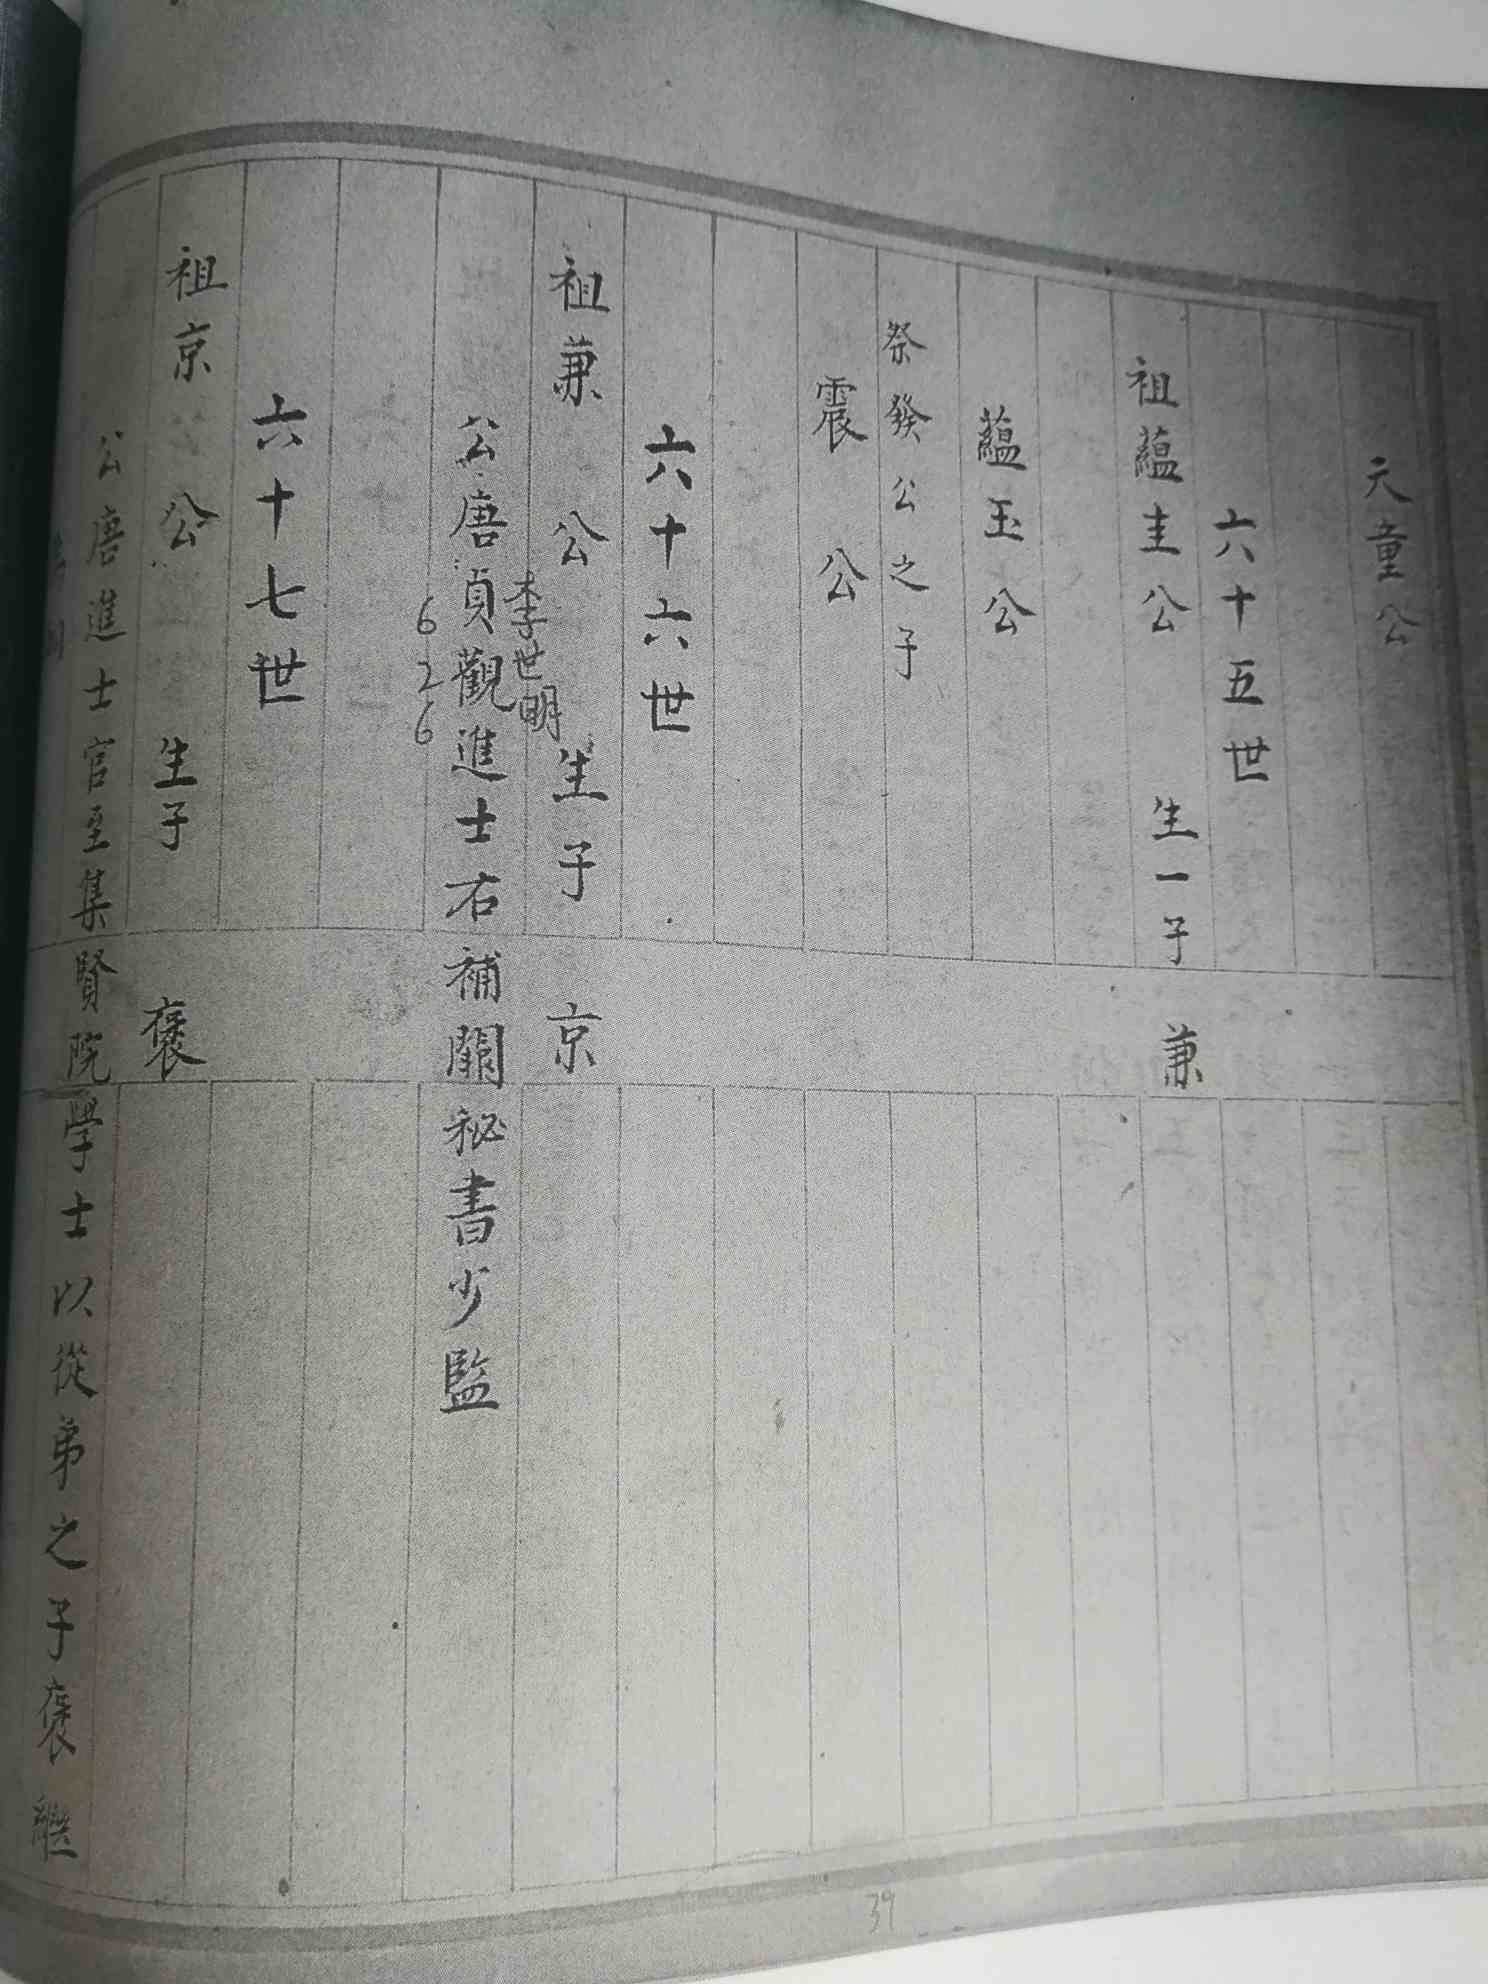 天童公
六十五世
祖蘊圭公 生一子 兼
蘊玉公
祭發公之子
震公
六十六世
祖兼公 生子 京
李世明
公唐貞觀進士右補闕秘書少監
626
六十七世
祖京公 生子 褒
公唐進士官至集賢院學士以從弟之子褒繼
39